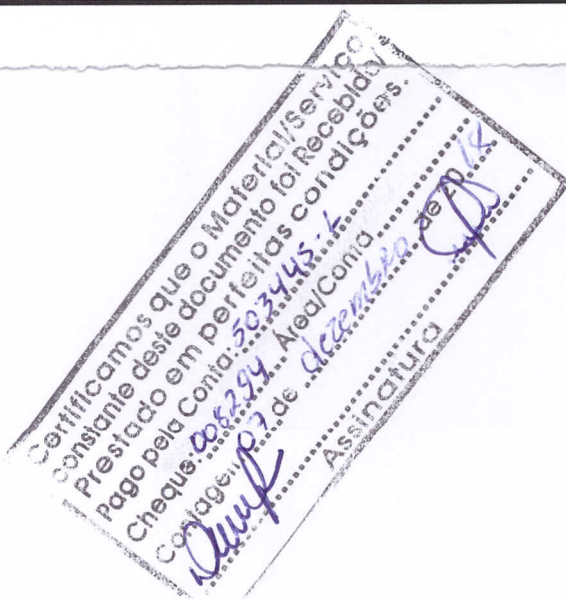 Certificamos que o Material/Serviço
constante deste documento foi Recebido/
Prestado em perfeitas condições.
Pago pela Conta: 503445-1
Cheque: 008294 Área/Conta
Contagem 07 de dezembro de 20 18
Assinatura